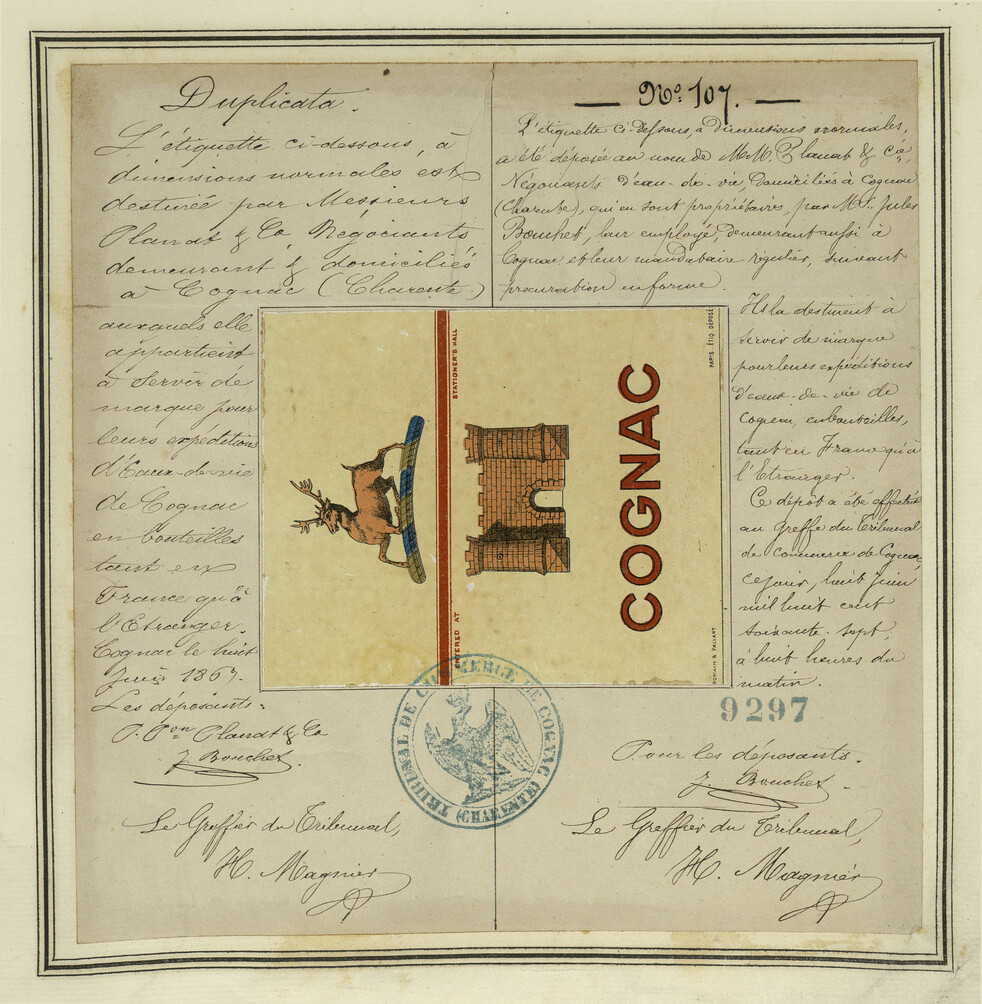 Duplicata.
L'étiquette ci-dessous, à
dimensions normales est
destinée par Messieurs
Planat & Co, Négociants,
demeurant & domiciliés
à Cognac (Charente)
auxquels elle
appartient
à servir de
marque pour
leurs expéditions
d'Eaux-de-vie
de Cognac
en bouteilles
tant en
France qu'à
l'Etranger.
Cognac le huit
Juin 1867.
Les déposants:
P. Pon Planat & Co
J. Bouchet
Le Greffier du Tribunal,
H. Magnier
— No. 107. —
L'étiquette ci-dessous, à dimensions normales,
a été déposée au nom de M.M. Planat & Cie,
Négociants d'eau-de-vie, domiciliés à Cognac
(Charente), qui en sont propriétaires, par Mr. Jules
Bouchet, leur employé, demeurant aussi à
Cognac, et leur mandataire régulier, suivant
procuration en forme.
Ils la destinent à
servir de marque
pour leurs expéditions
d'eaux-de-vie de
Cognac, en bouteilles,
tant en France qu'à
l'Etranger.
Ce dépôt a été effectué
au Greffe du Tribunal
de commerce de Cognac,
ce jour, huit Juin
mil huit cent
soixante-sept,
à huit heures du
matin.
9297
Pour les déposants.
J. Bouchet.
Le Greffier du Tribunal,
H. Magnier
ENTERED AT STATIONER'S HALL
COGNAC
ROMAIN & PALYART PARIS. ÉTIQ. DÉPOSÉ
TRIBUNAL DE COMMERCE DE COGNAC
(CHARENTE)